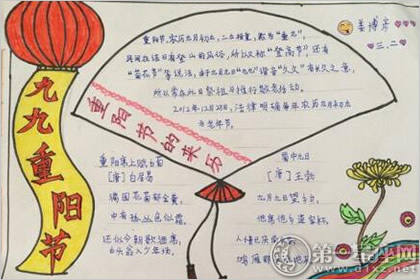 九九重阳节
重阳节,农历九月初九,二九相重,称为"重九",
民间在该日有登高的风俗,所以又称"登高节"还有
"茱萸节"等说法,由于九月九日"九九"谐音"久久"有长久之意,
所以常在此日祭祖与推行敬老活动。
2012年12月28日,法律明确每年农历九月初九
为老年节。
重阳节的来历
姜博
三、二
重阳席上赋白菊
[唐] 白居易
满园花菊郁金黄,
中有孤丛色似霜。
还似今朝歌酒席,
白头翁入少年场。
蜀中九日
[唐] 王勃
九月九日望乡台,
他席他乡送客杯。
人情已
鸿雁那
第一星座网
www.d1xz.net